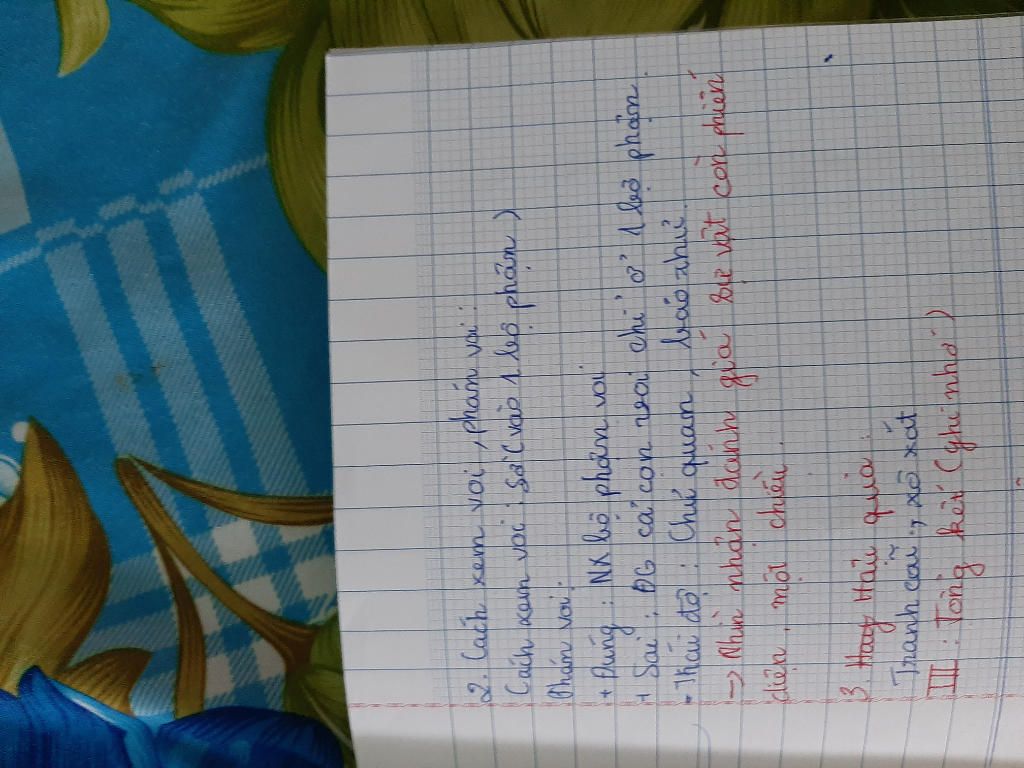 2. Cách xem voi, phán voi:
Cách xem voi: Sờ (vào 1 bộ phận)
Phán voi:
+ Đúng: NX bộ phận voi
+ Sai: ĐG cả con voi chỉ ở 1 bộ phận.
- Thái độ: Chủ quan, bảo thủ.
→ Nhìn nhận đánh giá sự vật còn phiến
diện, một chiều.
3. Hay Hậu quả:
Tranh cãi, xô xát
III: Tổng kết (ghi nhớ)